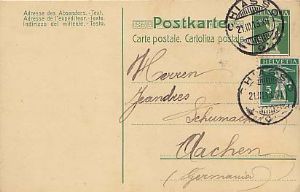 Adresse des Absenders. - Text.
Adresse de l'expéditeur. - Texte.
Indirizzo del mittente. - Testo.
Postkarte
Carte postale. Cartolina postale.
HELVETIA
5
21.III
Herren
Jeandres
Schumacher
Aachen
(Germanie)